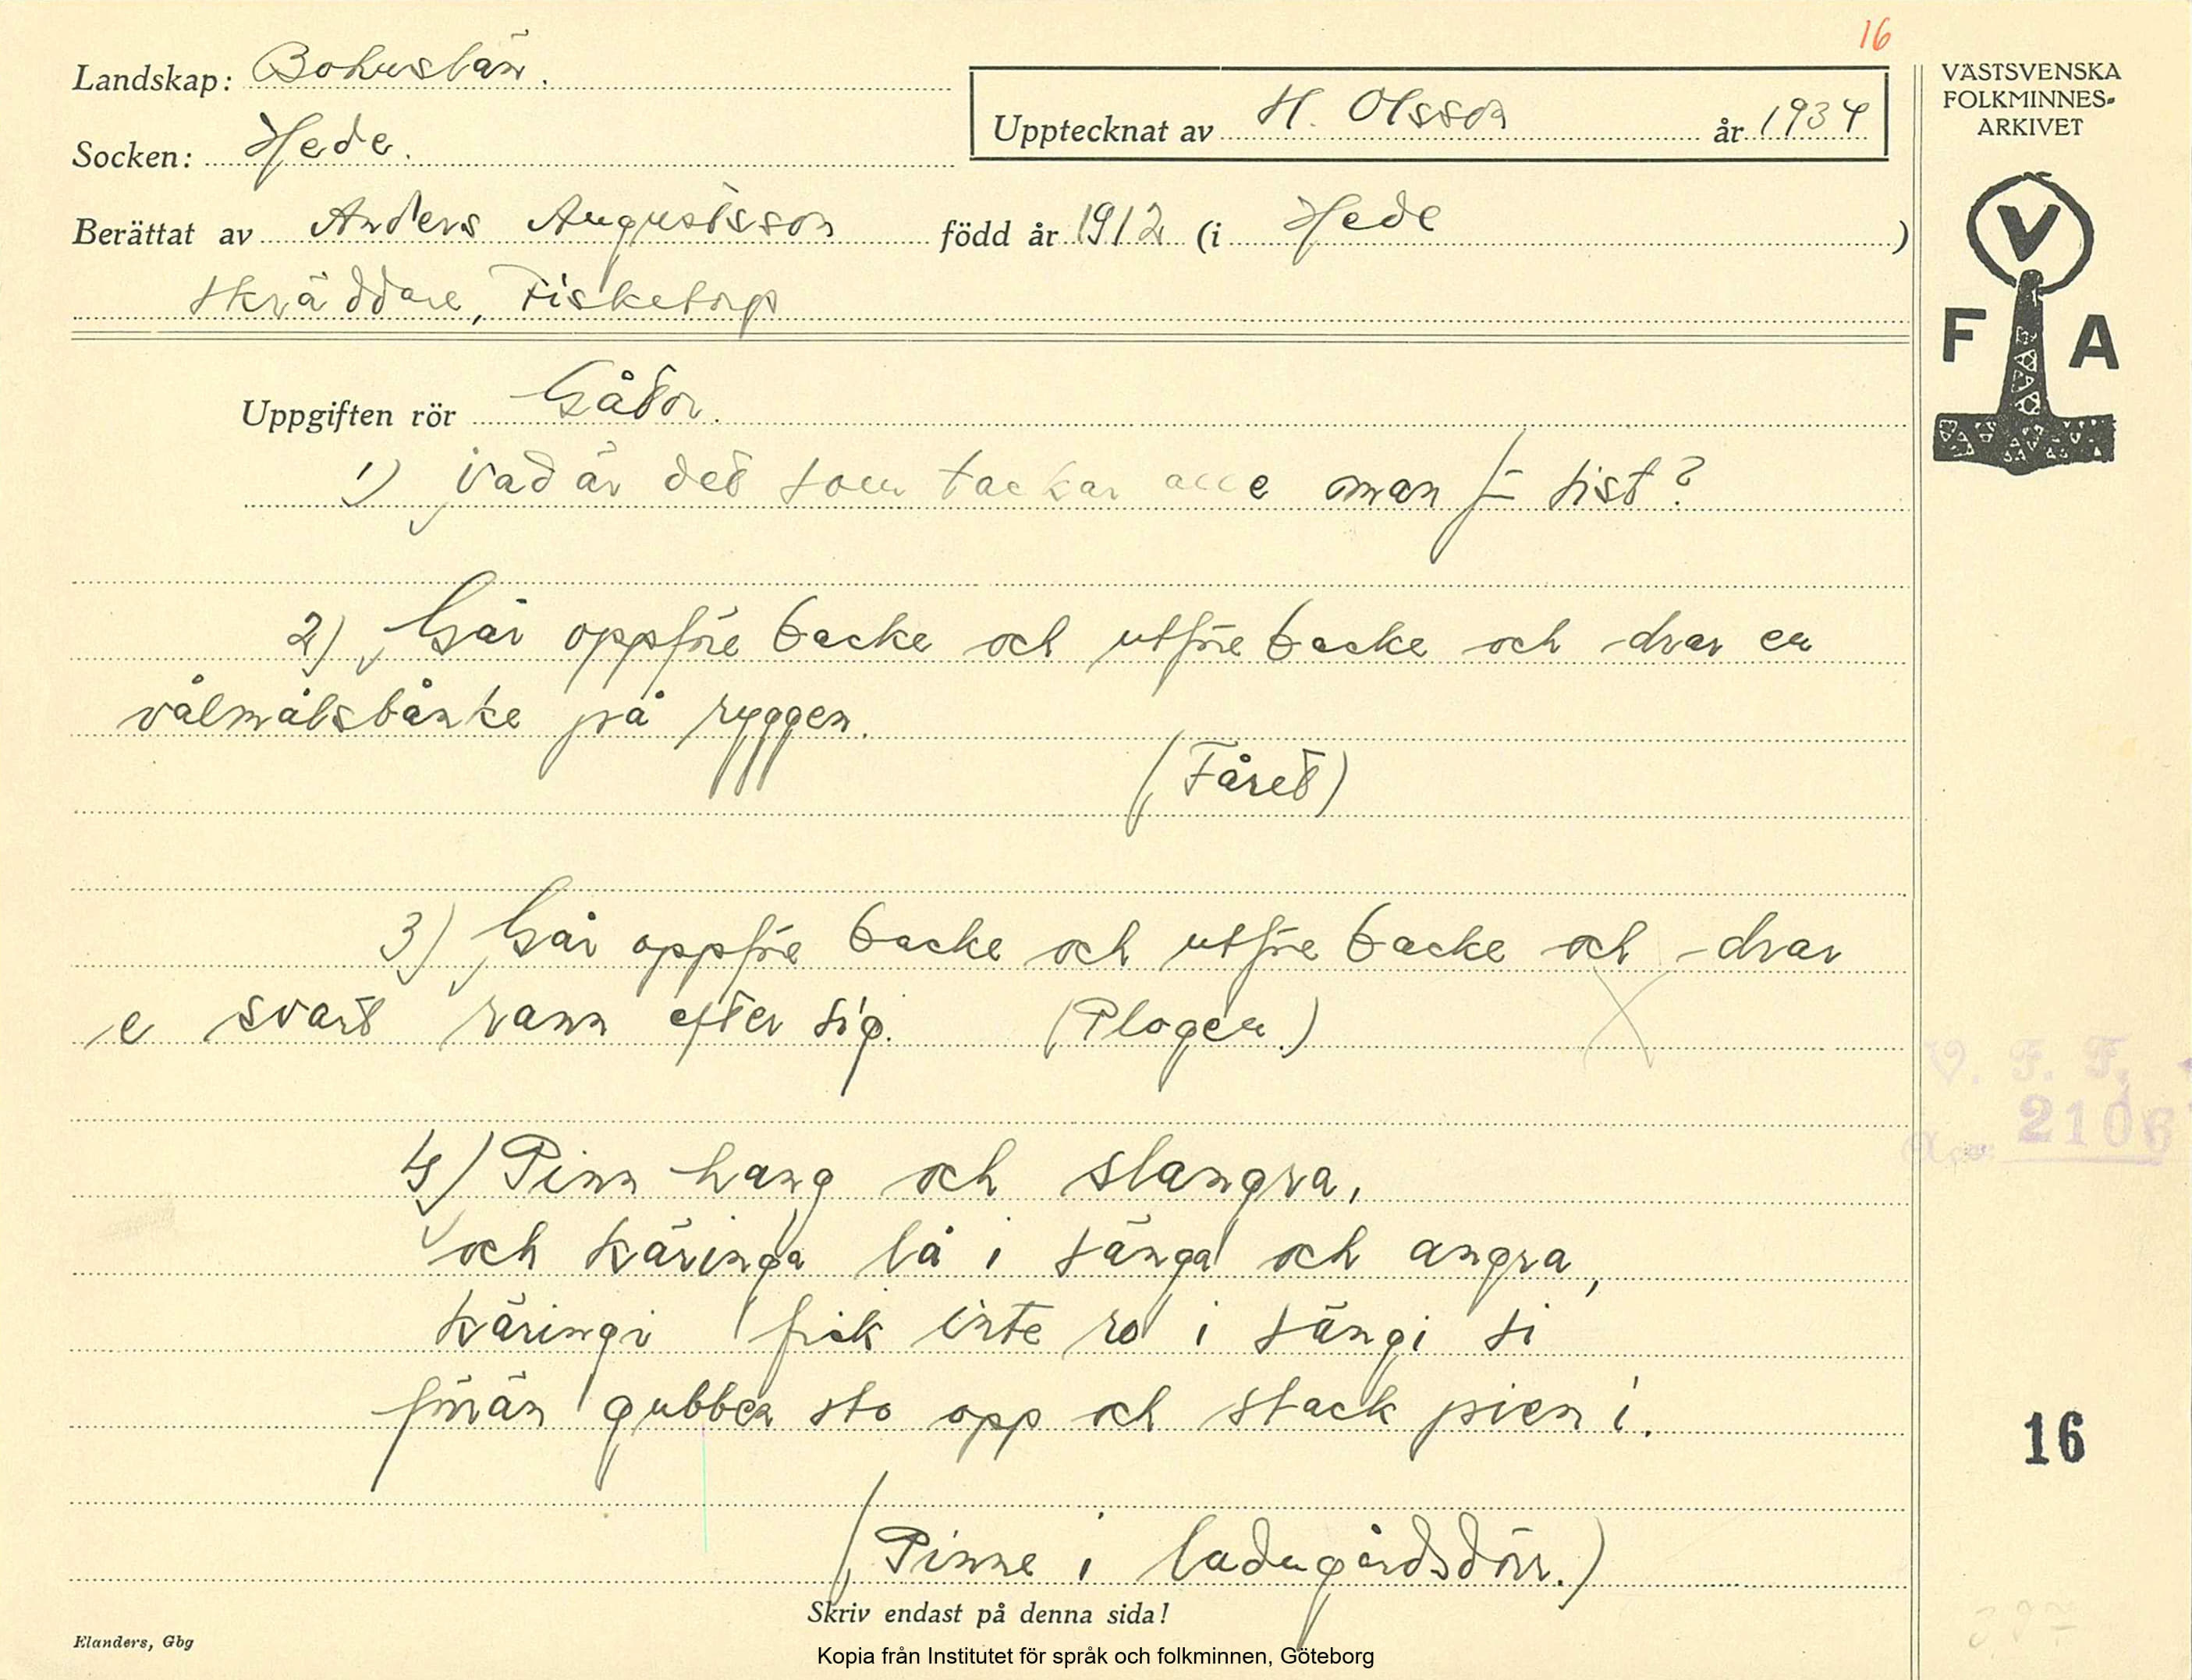 16
Landskap: Bohuslän.
Socken: Hede.
Upptecknat av H. Olsson år 1934
Berättat av Anders Augustsson född år 1912 (i Hede)
skräddare, Fisketorp
VÄSTSVENSKA
FOLKMINNES-
ARKIVET
V
F A
Uppgiften rör Gåtor.
1) Vad är det som tackar man sist?
2) Går oppföre backe och utföre backe och drar en
vålmålsbånke på ryggen.
(Fåret)
3) Går oppföre backe och utföre backe och drar
e svart rann efter sig. (Plogen.)
V. F. F.
2106
4) Pinn hang och slangra,
och käringa lå i sänga och angra,
käringi fick inte ro i sängi si
förrän gubben sto opp och stack pien i.
16
(Pinne i ladugårdsdörr.)
Skriv endast på denna sida!
Elanders, Gbg
Kopia från Institutet för språk och folkminnen, Göteborg